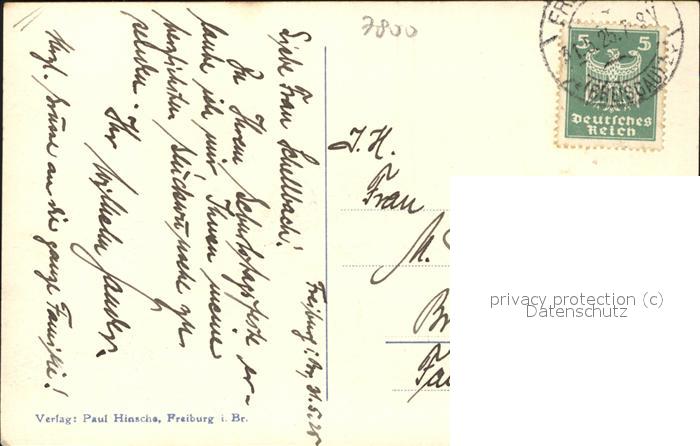 7800
Freiburg i. Br., 31.5.25
Liebe Frau Schellbach!
Zu Ihrem Geburtstagsfeste er-
laube ich mir Ihnen meine
herzlichsten Glückwünsche zu
senden.
Ihr Wilhelm
Herzl. Grüsse an die ganze Familie!
J. H.
Frau
M.
Br
5 5
Deutsches
Reich
(BREISGAU)
privacy protection (c)
Datenschutz
Verlag: Paul Hinsche, Freiburg i. Br.